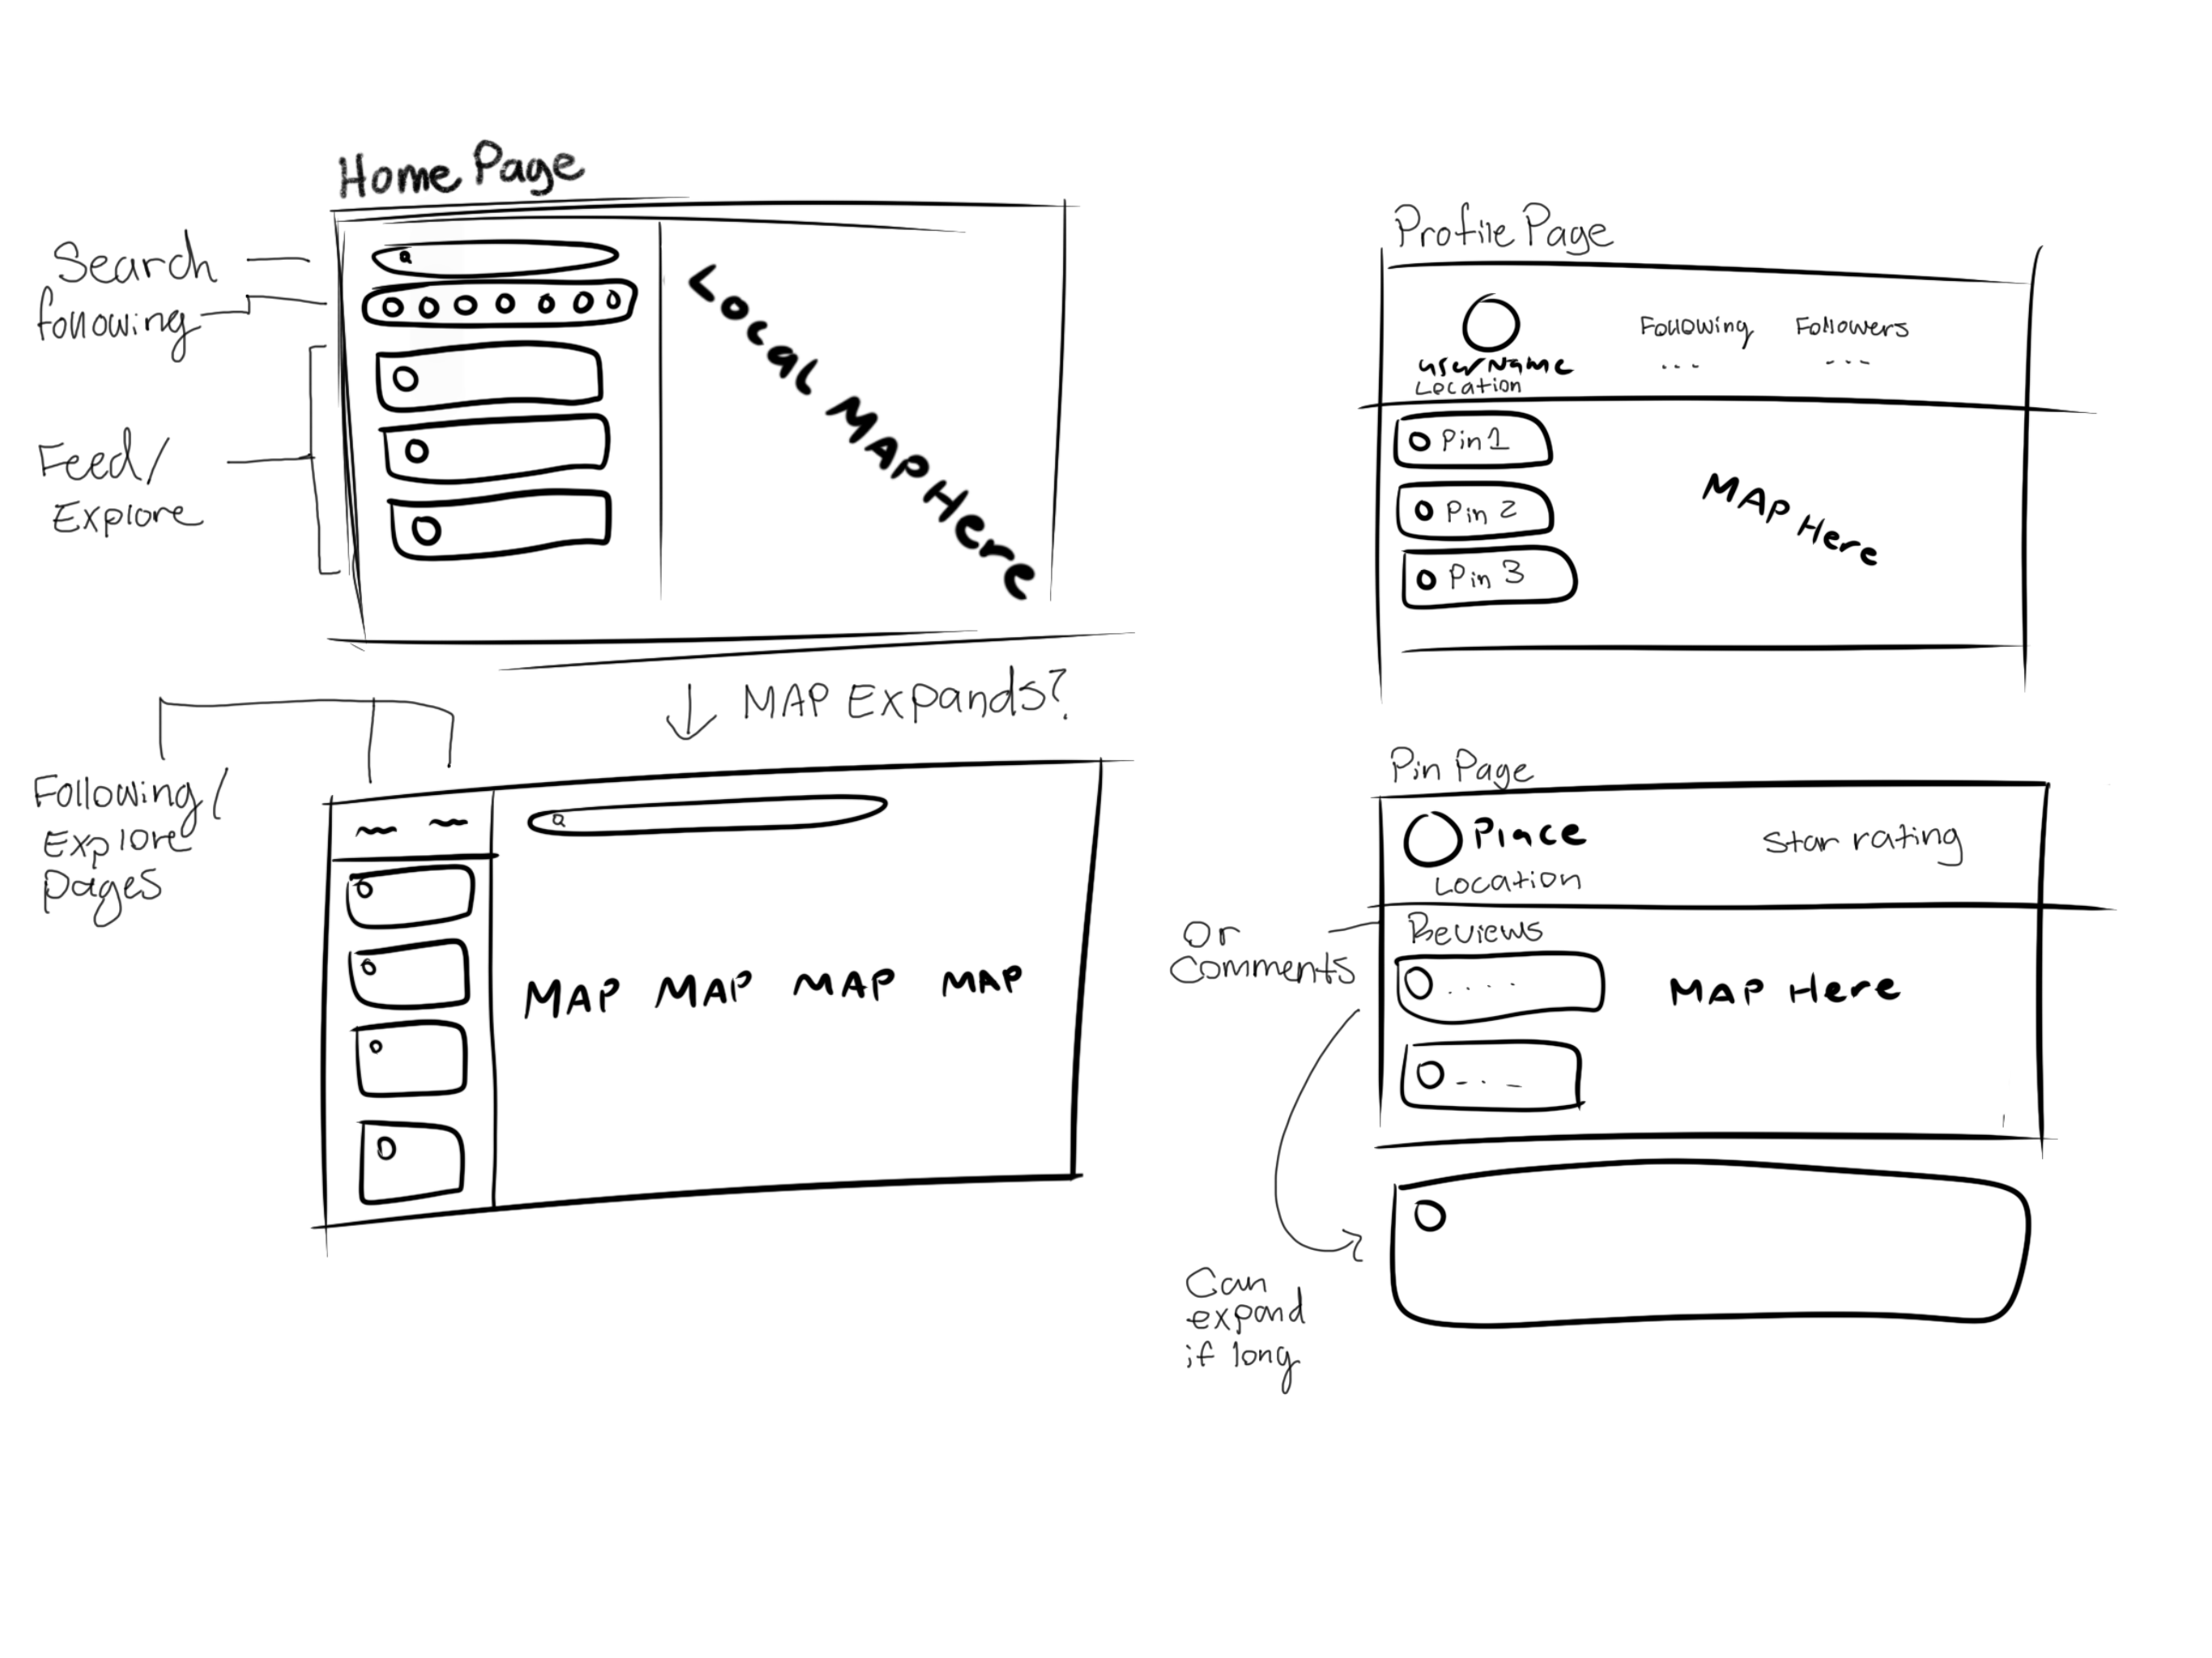 Home Page
Search
following
Feed/
Explore
Local MAP Here
MAP Expands?
Following/
Explore
pages
MAP MAP MAP MAP
Profile Page
userName
Location
Following
...
Followers
...
Pin 1
Pin 2
Pin 3
MAP Here
Pin Page
Place
Location
Star rating
Or
Comments
Reviews
....
MAP Here
Can
expand
if long